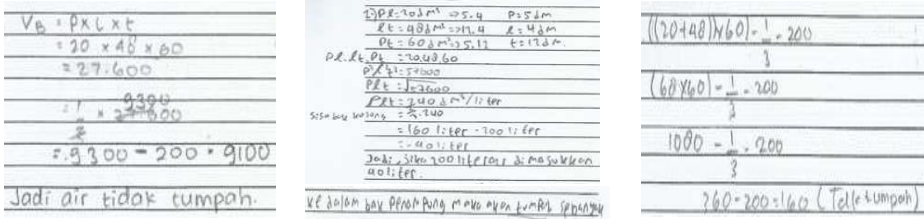 V_B = P x l x t
= 20 x 48 x 60
= 27.600
= 1/3 x 27.600 9300
= 9300 - 200 = 9100
Jadi air tidak tumpah.
Pl = 20 dm² => 5.4 P = 5 dm
lt = 48 dm² => 12.4 l = 4 dm
Pt = 60 dm² => 5.12 t = 12 dm
Pl . lt . Pt = 20.48.60
P²l²t² = 57600
Plt = √57600
Plt = 240 dm³/liter
= 2/3 . 240
= 160 liter - 200 liter
= -40 liter
Jadi, Jika 200 liter air dimasukkan
ke dalam bak penampung maka akan tumpah sebanyak
40 liter.
((20+48)x60) - 1/3 . 200
(68x60) - 1/3 . 200
1080 - 1/3 . 200
360 - 200 = 160 (Telle tumpah